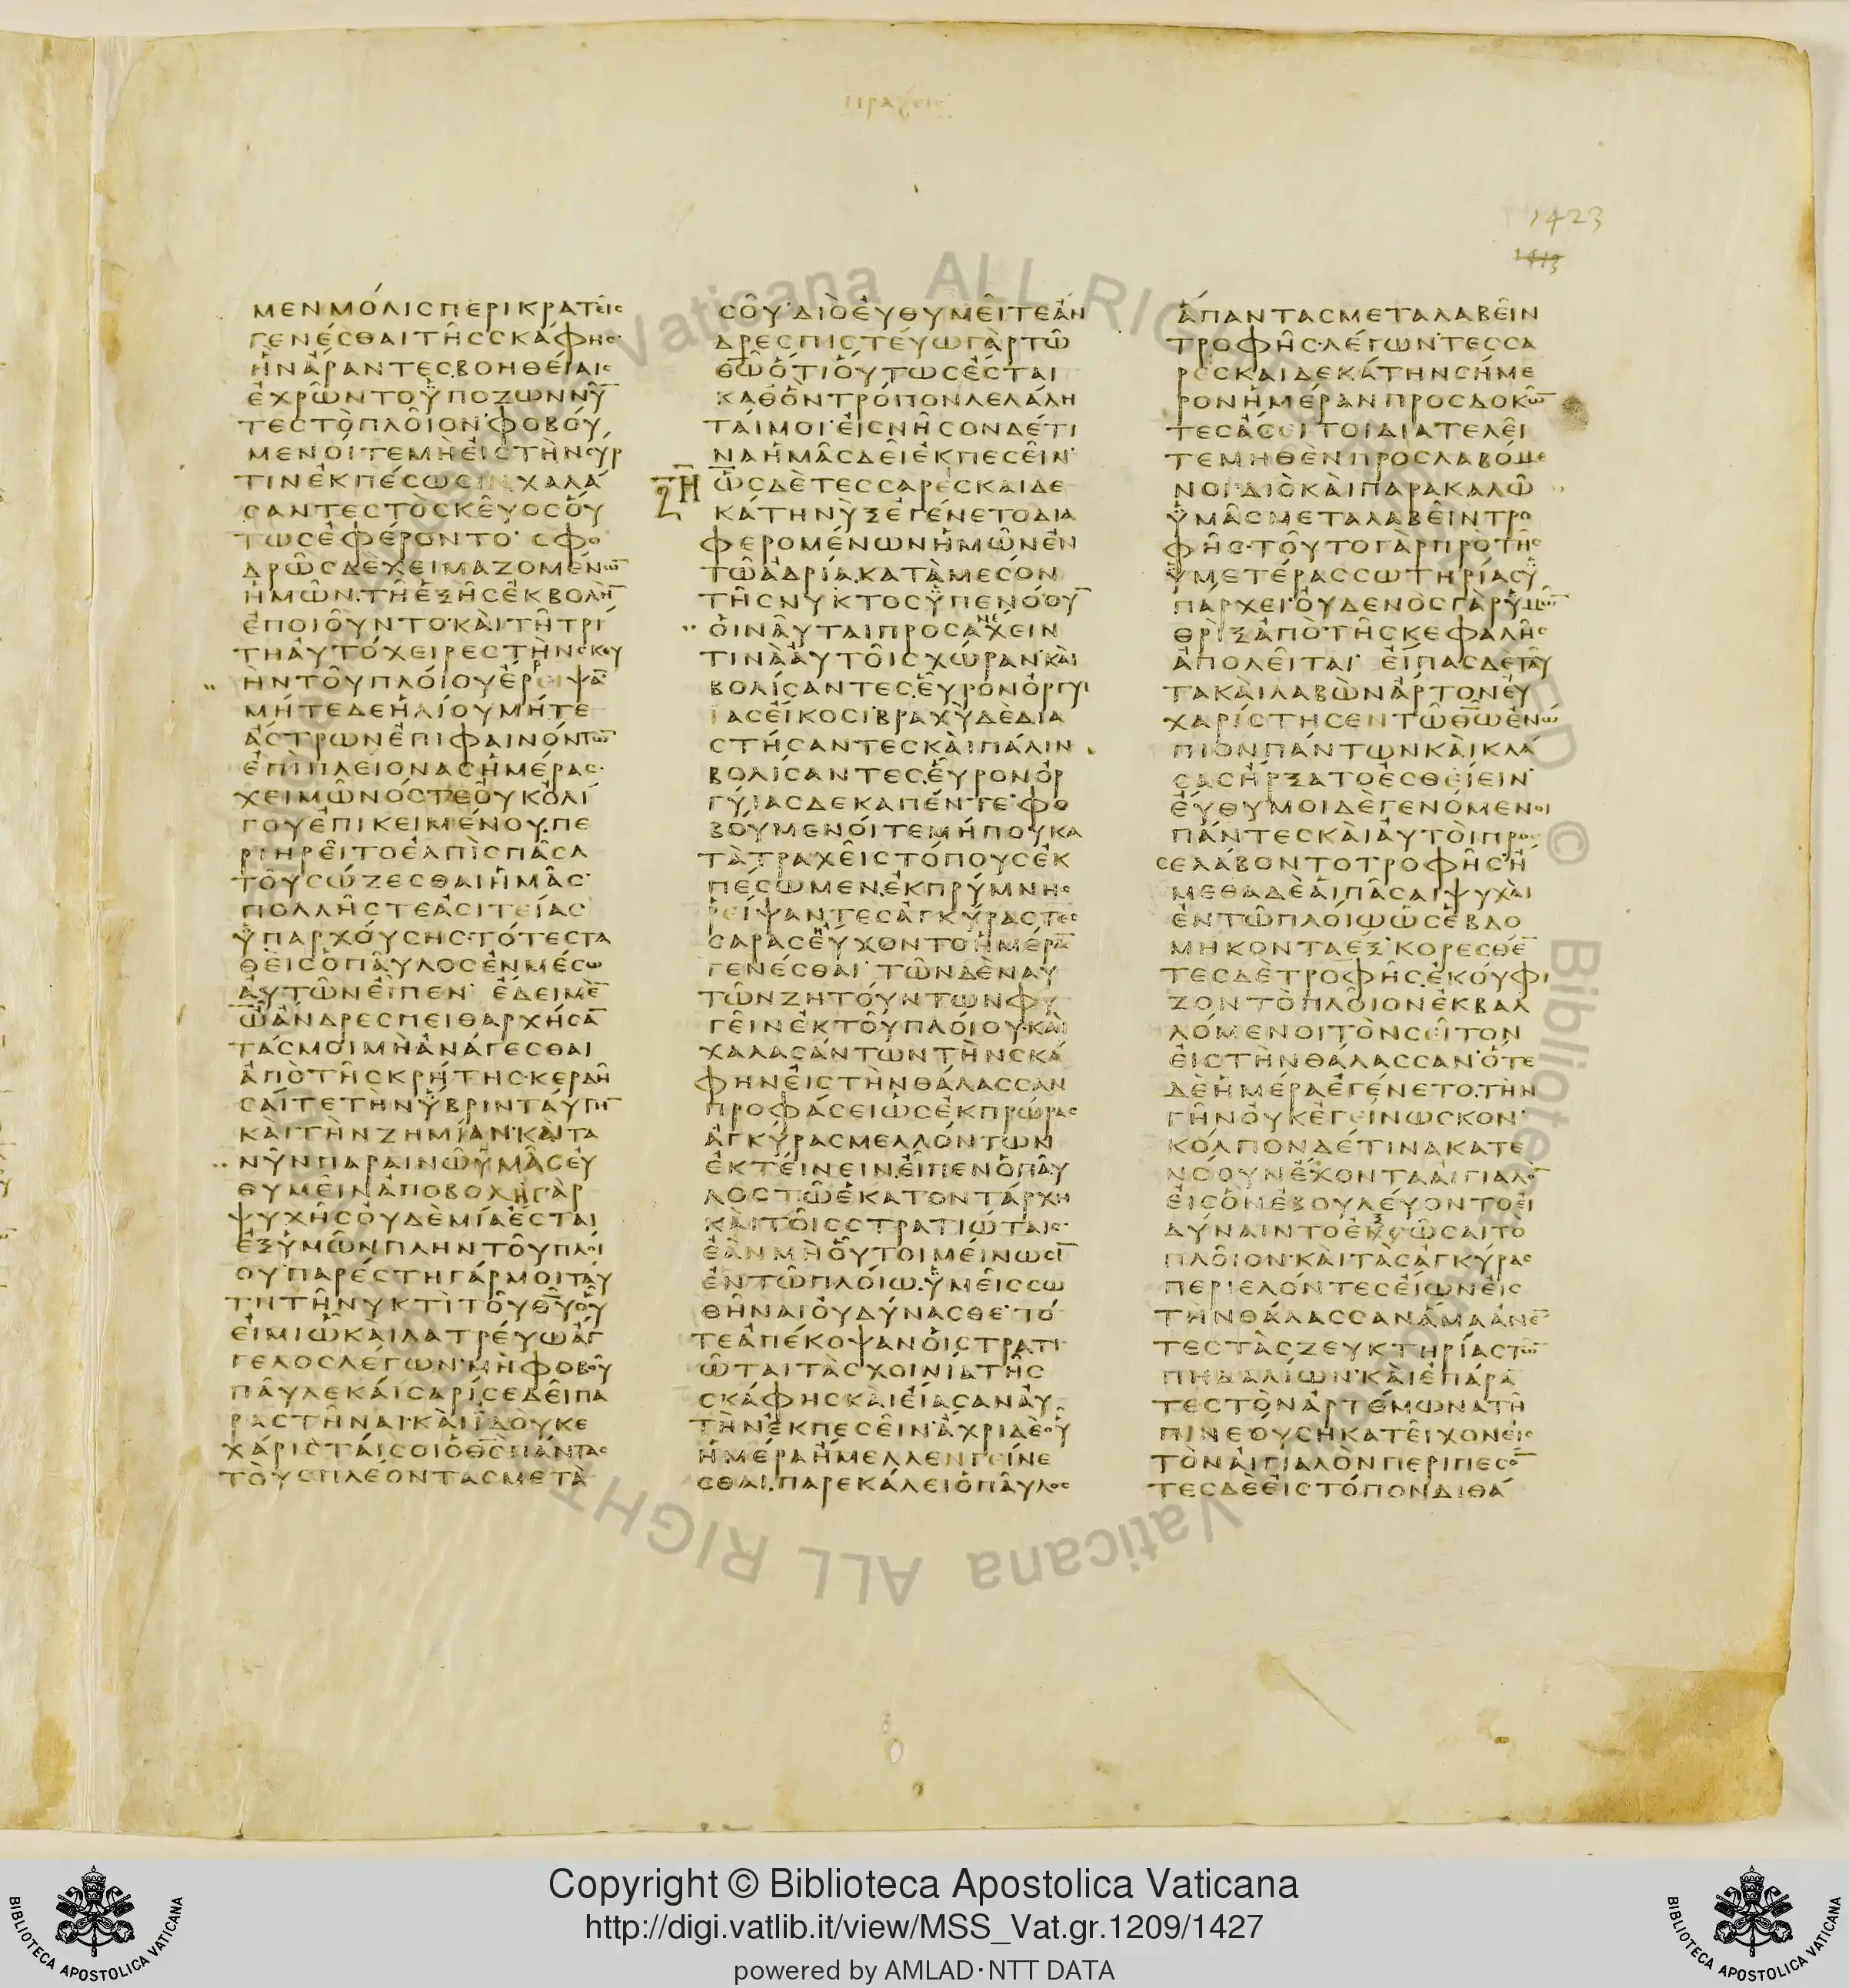 Πραξεις
1423
1413
ΜΕΝΜΌΛΙΣΠΕΡΙΚΡΑΤΕΙΣ
ΓΕΝΈΣΘΑΙΤΗ͂ΣΣΚΆΦΗΣ·
ἣΝἌΡΑΝΤΕΣ.ΒΟΗΘΕΊΑΙΣ
ἘΧΡΩ͂ΝΤΟὙΠΟΖΩΝΝΥ̅
ΤΕΣΤῸΠΛΟΙ͂ΟΝ·ΦΟΒΟΎ
ΜΕΝΟΊΤΕΜῊΕἸΣΤῊΝΣΥΡ
ΤΙΝἘΚΠΈΣΩΣΙΝΧΑΛΆ
ΣΑΝΤΕΣΤῸΣΚΕΥ͂ΟΣΟὝ
ΤΩΣἘΦΈΡΟΝΤΟ· ΣΦΟ
ΔΡΩ͂ΣΔῈΧΕΙΜΑΖΟΜΈΝΩ̅
ἩΜΩ͂Ν.ΤΗ͂ἙΞΗ͂ΣἘΚΒΟΛῊ̅
ἘΠΟΙΟΥ͂ΝΤΟ·ΚΑῚΤΗ͂ΤΡΙ
ΤΗΑΥΤΌΧΕΙΡΕΣΤῊΝΣΚΕΥ
ῊΝΤΟΥ͂ΠΛΟΊΟΥἜΡΡΕΙΨΑ̅
ΜΉΤΕΔΕἩΛΊΟΥΜΉΤΕ
ἌΣΤΡΩΝἘΠΙΦΑΙΝΌΝΤΩ̅
ἘΠῚΠΛΕΊΟΝΑΣἩΜΈΡΑΣ·
ΧΕΙΜΩ͂ΝΌΣΤΕΟΥΚΟΛΊ
ΓΟΥἘΠΙΚΕΙΜΈΝΟΥ.ΠΕ
ΡΙΗΡΕΙ͂ΤΟἘΛΠῚΣΠΑ͂ΣΑ
ΤΟΥ͂ΣΏΖΕΣΘΑΙἩΜΑ͂Σ·
ΠΟΛΛΗ͂ΣΤΕἈΣΙΤΕΊΑΣ
ὙΠΑΡΧΟΎΣΗΣ·ΤΌΤΕΣΤΑ
ΘΕῚΣὉΠΑΥ͂ΛΟΣἘΝΜΈΣΩ
ΑΥΤΩ͂ΝΕἾΠΕΝ· ἜΔΕΙΜῈ̅
ὮἌΝΔΡΕΣΠΕΙΘΑΡΧΉΣΑ̅
ΤΆΣΜΟΙΜῊἈΝΆΓΕΣΘΑΙ
ἈΠῸΤΗ͂ΣΚΡΉΤΗΣ·ΚΕΡΔΗ
ΣΑΊΤΕΤΗΝὝΒΡΙΝΤΑΎΤΗ̅
ΚΑῚΤῊΝΖΗΜΊΑΝ·ΚΑῚΤΑ
ΝΥ͂ΝΠΑΡΑΙΝΩ͂ὙΜΑ͂ΣΕΥ
ΘΥΜΕΙ͂ΝἈΠΟΒΟΛῊΓᾺΡ
ΨΥΧΗ͂ΣΟΥΔῈΜΊΑἜΣΤΑΙ
ἘΞὙΜΩ͂ΝΠΛΗΝΤΟΥ͂ΠΛΟΊ
ΟΥ·ΠΑΡΈΣΤΗΓΆΡΜΟΙΤΑΎ
ΤΗΤΗ͂ΝΥΚΤῚΤΟΥ͂Θ̅Υ̅ΟΥ͂
ΕἸΜΙὮΚΑῚΛΑΤΡΕΎΩἌΓ
ΓΕΛΟΣΛΈΓΩΝ·ΜῊΦΟΒΟΥ͂
ΠΑΥ͂ΛΕΚΑΊΣΑΡΊΣΕΔΕΙ͂ΠΑ
ΡΑΣΤΗ͂ΝΑΙ·ΚΑῚἸΔΟΥΚΕ
ΧΆΡΙΣΤΑΊΣΟΙὉΘ̅Σ̅ΠΆΝΤΑΣ
ΤΟΥΣΠΛΈΟΝΤΑΣΜΕΤᾺ
ΣΟΥ͂·ΔΙῸΕΥΘΥΜΕΙ͂ΤΕἌΝ
ΔΡΕΣΠΙΣΤΕΎΩΓᾺΡΤΩ͂
Θ̅Ω̅ὍΤΙΟὝΤΩΣἜΣΤΑΙ
ΚΑΘΌΝΤΡΌΠΟΝΛΕΛΆΛΗ
ΤΑΊΜΟΙ·ΕἸΣΝΗ͂ΣΟΝΔΈΤΙ
ΝΑἩΜΑ͂ΣΔΕΙ͂ἘΚΠΕΣΕΙ͂Ν·
ὩΣΔῈΤΕΣΣΑΡΕΣΚΑΙΔΕ
ΚΆΤΗΝΥΞἘΓΈΝΕΤΟΔΙΑ
ΦΕΡΟΜΈΝΩΝἩΜΩ͂ΝἘΝ
ΤΩ͂ἈΔΡΊΑ.ΚΑΤᾺΜΕΣΟΝ
ΤΗ͂ΣΝΥΚΤΟΣὙΠΕΝΌΟΥ̅
ΟἹΝΑΥ͂ΤΑΙΠΡΟΣΑΝΕΧΕΙΝ
ΤΙΝᾺΑΥΤΟΙ͂ΣΧΏΡΑΝ·ΚΑῚ
ΒΟΛΊΣΑΝΤΕΣ.ΕΥ͂ΡΟΝὈΡΓΥΙ
ΑΣΕἼΚΟΣΙ·ΒΡΑΧῪΔῈΔΙΑ
ΣΤΉΣΑΝΤΕΣΚΑῚΠΆΛΙΝ
ΒΟΛΊΣΑΝΤΕΣ.ΕΥ͂ΡΟΝὈΡ
ΓΥΙΑΣΔΕΚΑΠΈΝΤΕ·ΦΟ
ΒΟΎΜΕΝΟΊΤΕΜΉΠΟΥΚΑ
ΤᾺΤΡΑΧΕΙ͂ΣΤΌΠΟΥΣἘΚ
ΠΈΣΩΜΕΝ.ἘΚΠΡΎΜΝΗΣ
ΡΕΊΨΑΝΤΕΣἈΓΚΎΡΑΣΤΕΣ
ΣΑΡΑΣΗΥΧΟΝΤΟἩΜΈΡΑ̅
ΓΕΝΈΣΘΑΙ· ΤΩ͂ΝΔῈΝΑΥ
ΤΩ͂ΝΖΗΤΟΎΝΤΩΝΦΥ
ΓΕΙ͂ΝἘΚΤΟΥ͂ΠΛΟΊΟΥ·ΚΑῚ
ΧΑΛΑΣΆΝΤΩΝΤῊΝΣΚΆ
ΦΗΝΕἸΣΤῊΝΘΆΛΑΣΣΑΝ
ΠΡΟΦΆΣΕΙὩΣἘΚΠΡΏΡΑΣ
ἈΓΚΎΡΑΣΜΕΛΛΌΝΤΩΝ
ἘΚΤΕΊΝΕΙΝ.ΕἾΠΕΝὉΠΑΥ͂
ΛΟΣΤΩ͂ἙΚΑΤΟΝΤΆΡΧΗ
ΚΑῚΤΟΙ͂ΣΣΤΡΑΤΙΏΤΑΙΣ·
ἘᾺΝΜῊΟὟΤΟΙΜΕΊΝΩΣΙ̅
ἘΝΤΩ͂ΠΛΟΊΩ.ὙΜΕΙ͂ΣΣΩ
ΘΗ͂ΝΑΙΟΥΔΎΝΑΣΘΕ·ΤΌ
ΤΕἈΠΈΚΟΨΑΝΟἹΣΤΡΑΤΙ
Ω͂ΤΑΙΤᾺΣΧΟΙΝΊΑΤΗ͂Σ
ΣΚΆΦΗΣΚΑῚΕἼΑΣΑΝΑΥ
ΤῊΝἘΚΠΕΣΕΙ͂Ν·ἌΧΡΙΔῈΟΥ͂
ἩΜΈΡΑἬΜΕΛΛΕΝΓΕΊΝΕ
ΣΘΑΙ.ΠΑΡΕΚΆΛΕΙὉΠΑΥ͂ΛΟΣ
ἍΠΑΝΤΑΣΜΕΤΑΛΑΒΕΙ͂Ν
ΤΡΟΦΗ͂Σ·ΛΈΓΩΝ·ΤΕΣΣΑ
ΡΕΣΚΑΙΔΕΚΆΤΗΝΣΉΜΕ
ΡΟΝἩΜΈΡΑΝΠΡΟΣΔΟΚΩ̅
ΤΕΣἈΣΕΙΤΟΙΔΙΑΤΕΛΕΙ͂
ΤΕΜΗΘῈΝΠΡΟΣΛΑΒΌΜΕ
ΝΟΙ·ΔΙῸΚΑῚΠΑΡΑΚΑΛΩ͂
ὙΜΑ͂ΣΜΕΤΑΛΑΒΕΙ͂ΝΤΡΟ
ΦΗ͂Σ·ΤΟΥ͂ΤΟΓᾺΡΠΡΟΤΗ͂Σ
ὙΜΕΤΈΡΑΣΣΩΤΗΡΊΑΣΥ
ΠΆΡΧΕΙ·ΟΥΔΕΝῸΣΓᾺΡὙΜΩ̅
ΘΡῚΞἈΠῸΤΗ͂ΣΚΕΦΑΛΗ͂Σ
ἈΠΟΛΕΙ͂ΤΑΙ· ΕἼΠΑΣΔῈΤΑΥ͂
ΤΑΚΑῚΛΑΒῺΝἌΡΤΟΝΕΥ
ΧΑΡΊΣΤΗΣΕΝΤΩ͂Θ̅Ω̅ἘΝΏ
ΠΙΟΝΠΆΝΤΩΝΚΑῚΚΛΆ
ΣΑΣἬΡΞΑΤΟἘΣΘΕΊΕΙΝ·
ΕΎΘΥΜΟΙΔῈΓΕΝΌΜΕΝΟΙ
ΠΆΝΤΕΣΚΑῚΑΥΤΟῚΠΡΟΣ
ΣΕΛΆΒΟΝΤΟΤΡΟΦΗ͂Σ·Ἠ
ΜΕΘΑΔῈΑἹΠΑ͂ΣΑΙΨΥΧΑῚ
ἘΝΤΩ͂ΠΛΟΊΩὩΣἙΒΔΟ
ΜΗΚΟΝΤΑἝΞ·ΚΟΡΕΣΘΈ̅
ΤΕΣΔῈΤΡΟΦΗ͂Σ.ἘΚΟΎΦΙ
ΖΟΝΤῸΠΛΟΙ͂ΟΝἘΚΒΑΛ
ΛΌΜΕΝΟΙΤῸΝΣΕΙ͂ΤΟΝ
ΕἸΣΤῊΝΘΆΛΑΣΣΑΝ·ὍΤΕ
ΔῈἩΜΈΡΑἘΓΈΝΕΤΟ.ΤῊΝ
ΓΗ͂ΝΟΥΚἘΓΕΙΝΩΣΚΟΝ·
ΚΌΛΠΟΝΔΈΤΙΝΑΚΑΤΕ
ΝΟΟΥΝἜΧΟΝΤΑΑἸΓΙΑΛΟ̅
ΕἸΣὋΝἘΒΟΥΛΕΎΟΝΤΟΕἸ
ΔΎΝΑΙΝΤΟἘΚΣΩ͂ΣΑΙΤῸ
ΠΛΟΙ͂ΟΝ·ΚΑῚΤᾺΣἈΓΚΎΡΑΣ
ΠΕΡΙΕΛΌΝΤΕΣΕἼΩΝΕἸΣ
ΤῊΝΘΆΛΑΣΣΑΝἍΜΑἈΝΈ̅
ΤΕΣΤᾺΣΖΕΥΚΤΗΡΊΑΣΤΩ̅
ΠΗΔΑΛΊΩΝ·ΚΑῚἘΠΆΡΑ̅
ΤΕΣΤῸΝἈΡΤΈΜΩΝΑΤΗ͂
ΠΙΝΕΟΎΣΗΚΑΤΕΙ͂ΧΟΝΕἸΣ
ΤῸΝΑἸΓΙΑΛῸΝΠΕΡΙΠΕΣΟ̅
ΤΕΣΔῈΕἸΣΤΌΠΟΝΔΙΘΆ
Copyright © Biblioteca Apostolica Vaticana
http://digi.vatlib.it/view/MSS_Vat.gr.1209/1427
powered by AMLAD·NTT DATA